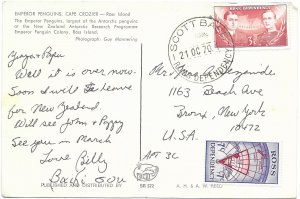 EMPEROR PENGUINS, CAPE CROZIER - Ross Island
The Emperor Penguins, largest of the Antarctic penguins
or the New Zealand Antarctic Research Programme
Emperor Penguin Colony, Ross Island.
Photograph: Guy Mannering
Yaya + Papu
Well it is over now.
Soon I will be leave
for New Zealand.
Will see John + Peggy
See you in March
Love Billy
SCOTT BASE
21 OC 70
ROSS DEPENDENCY
ROSS DEPENDENCY
Mr + Mrs
1163 Beach Ave
Bronx, New York
10472
U.S.A.
APT 3C
ROSS
DEPENDENCY
PUBLISHED AND DISTRIBUTED BY
SR 572
A. H. & A. W. REED